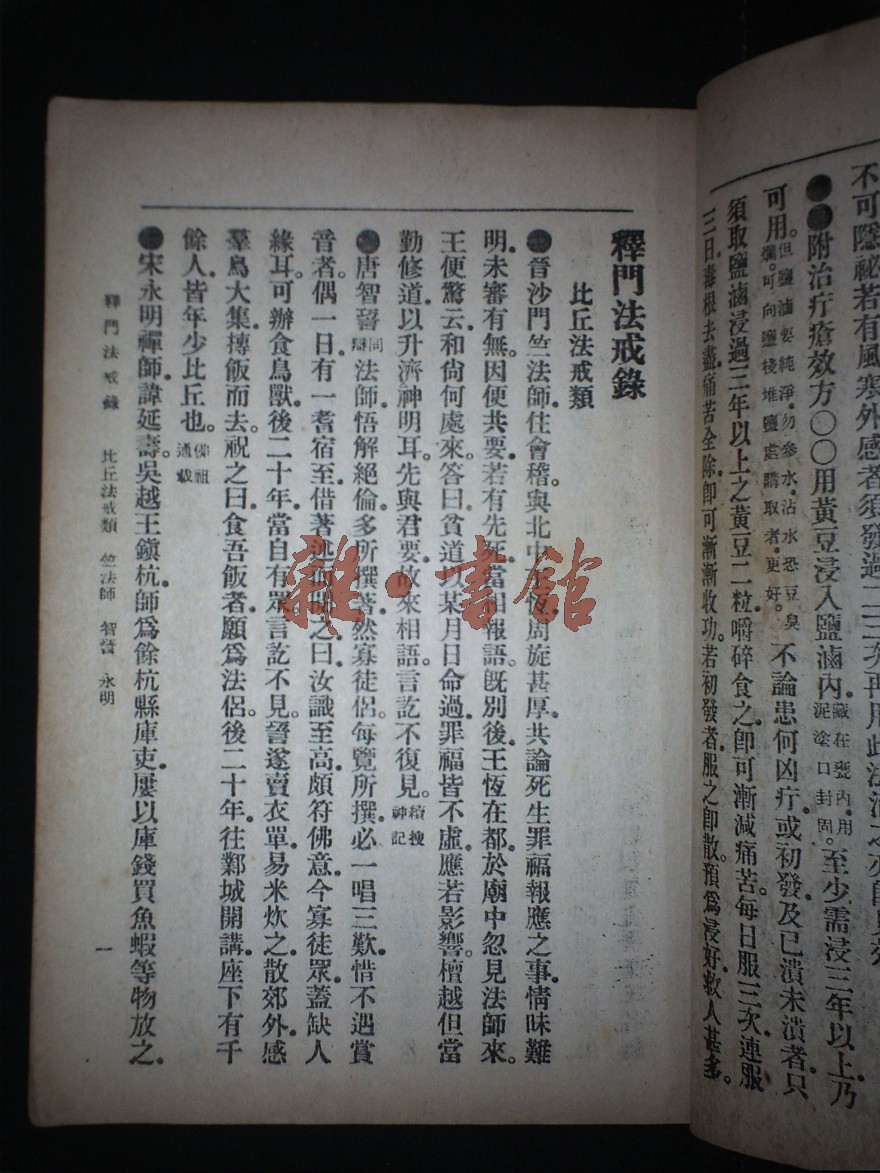 不可隱祕若有風寒外感者須發過二三次再用此法治之亦
●●附治疔瘡效方○○用黃豆浸入鹽滷內。藏在甕內。用泥塗口封固。至少需浸三年以上。乃
可用。但鹽滷要純淨。勿參水。沾水恐豆臭爛。可向鹽棧堆鹽處購取者。更好。不論患何凶疔。或初發及已潰未潰者。只
須取鹽滷浸過三年以上之黃豆二粒。嚼碎食之。即可漸減痛苦。每日服三次。連服
三日。毒根去盡。痛苦全除。即可漸漸收功。若初發者服之即散。預爲浸好。救人甚多。
釋門法戒錄
比丘法戒類
●晉沙門竺法師。住會稽。與北中王恆。周旋甚厚。共論死生罪福報應之事。情味難
明。未審有無。因便共要。若有先死。當相報語。旣別後。王恆在都。於廟中忽見法師來。
王便驚云。和尙何處來。答曰。貧道以某月日命過。罪福皆不虛。應若影響。檀越但當
勤修道。以升濟神明耳。先與君要。故來相語。言訖不復見。續搜神記
●唐智晉同法師。悟解絕倫。多所撰著。然寡徒侶。每覽所撰。必一唱三歎。惜不遇賞
音者。偶一日。有一耆宿至。借著述衡閱之。曰。汝識至高。頗符佛意。今寡徒眾。蓋缺人
緣耳。可辦食鳥獸。後二十年。當自有眾。言訖不見。遂賣衣單。易米炊之。散郊外。感
羣鳥大集摶飯而去。祝之曰。食吾飯者。願爲法侶。後二十年。往鄴城開講。座下有千
餘人。皆年少比丘也。佛祖通載
●宋永明禪師。諱延壽。吳越王鎭杭。師爲餘杭縣庫吏。屢以庫錢買魚蝦等物放之。
釋門法戒錄 比丘法戒類 竺法師 智 永明 一
雜·書館